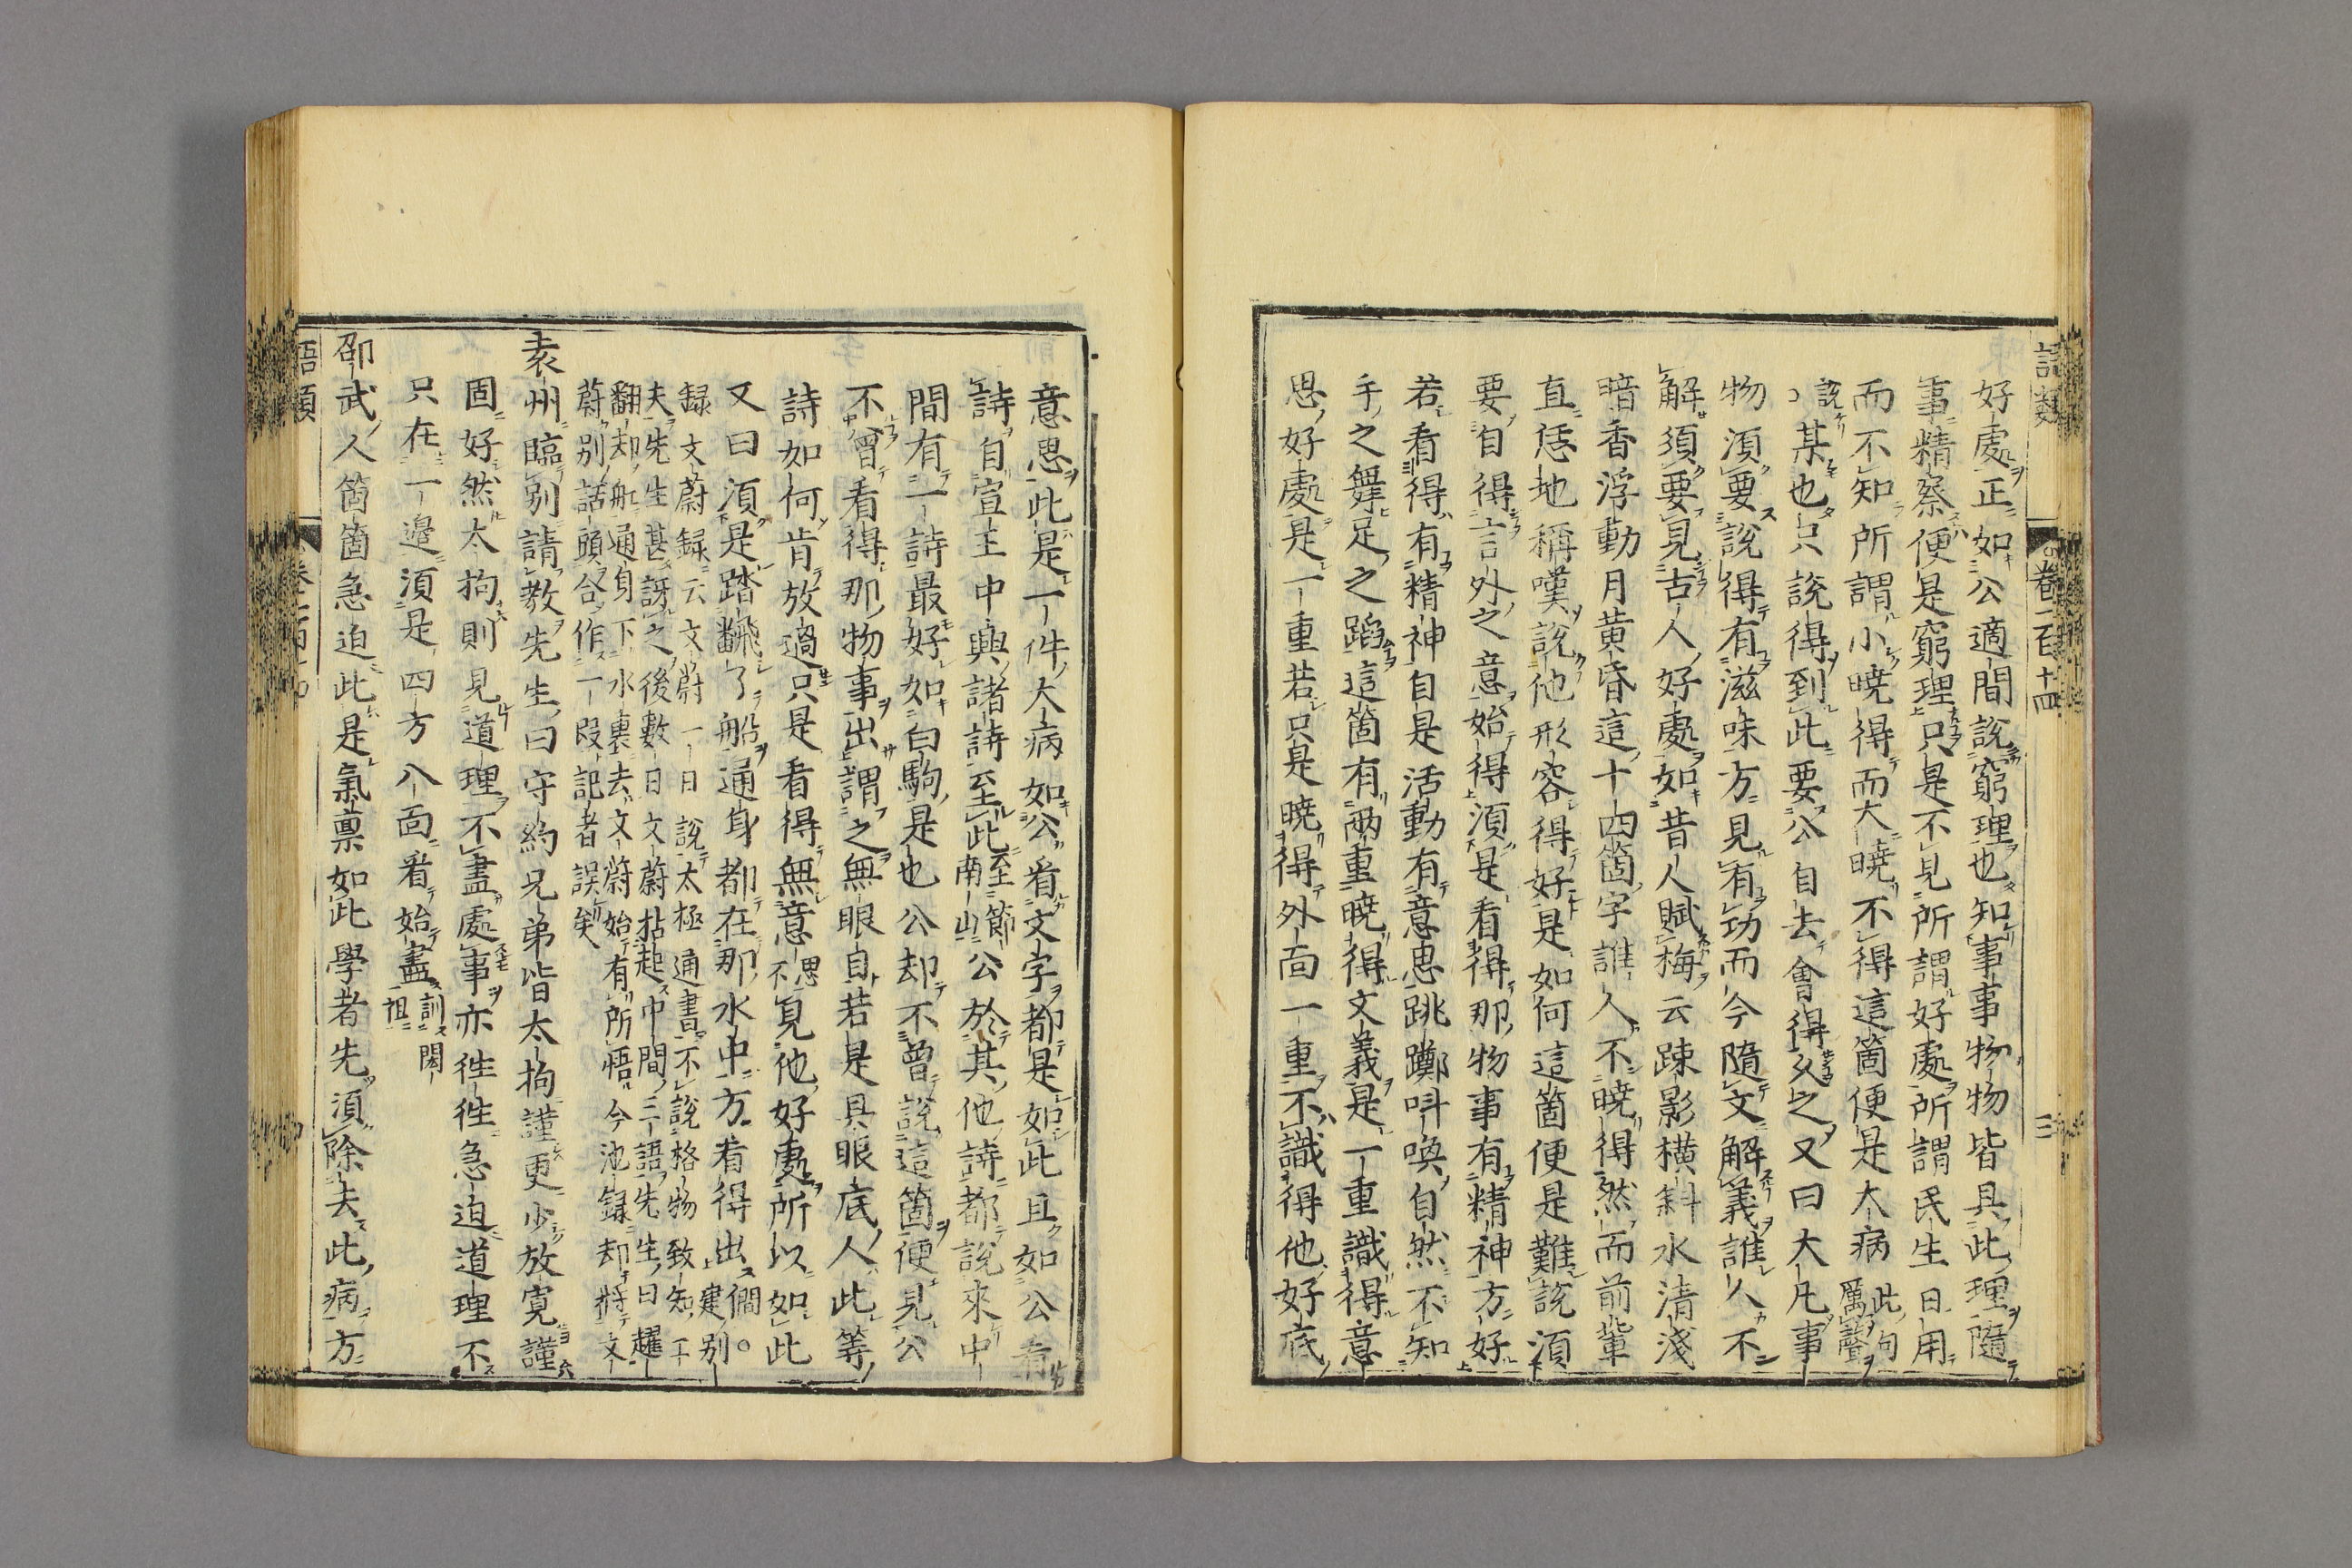 語類
卷一百十四
三
好處正如公適間說窮理也知事事物物皆具此理隨
事精察便是窮理只是不見所謂好處所謂民生日用
而不知所謂小曉得而大曉不得這箇便是大病此句厲聲
說
某也只說得到此要公自去會得久之又曰大凡事
物須要說得有滋味方見有功而今隨文解義誰人不
解須要見古人好處如昔人賦梅云疎影橫斜水清淺
暗香浮動月黄昏這十四箇字誰人不曉得然而前輩
直恁地稱嘆說他形容得好是如何這箇便是難說須
要自得言外之意始得須是看得那物事有精神方好
若看得有精神自是活動有意思跳躑叫喚自然不知
手之舞足之蹈這箇有兩重曉得文義是一重識得意
思好處是一重若只是曉得外面一重不識得他好底
意思此是一件大病如公看文字都是如此且如公看
詩自宣王中興諸詩至此至節南山公於其他詩都說來中
間有一詩最好如白駒是也公却不曾說這箇便見公
不曾看得那物事出謂之無眼目若是具眼底人此等
詩如何肯放過只是看得無意思不見他好處所以如此
又曰須是踏翻了船通身都在那水中方看得出僩○建別
錄文蔚錄云文蔚一日說太極通書不說格物致知工
夫先生甚訝之後數日文蔚拈起中間三語先生曰趯
翻却舡通身下水裏去文蔚始有所悟今池錄却將文
蔚別話頭合作一段記者誤矣
袁州臨別請教先生曰守約兄弟皆太拘謹更少放寬謹
固好然太拘則見道理不盡處事亦往往急迫道理不
只在一邊須是四方八面看始盡訓閎祖
邵武人箇箇急迫此是氣稟如此學者先須除去此病方
語類